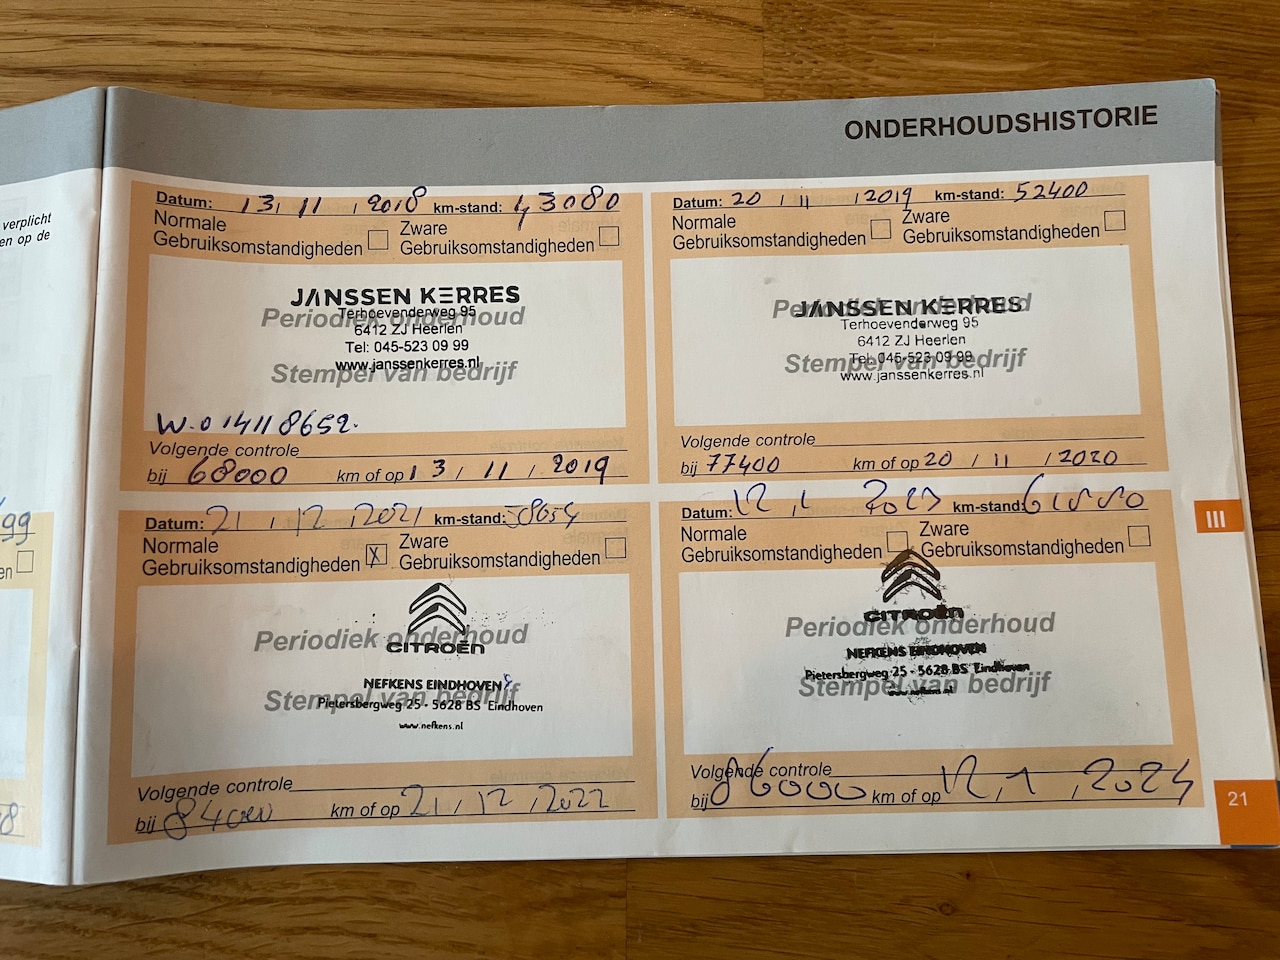 ONDERHOUDSHISTORIE
verplicht
en op de
99
en
8
Datum: 13, 11, 2018 km-stand: 43080
Normale
Gebruiksomstandigheden
Zware
Gebruiksomstandigheden
JANSSEN KERRES
Periodiek onderhoud
Terhoevenderweg 95
6412 ZJ Heerlen
Tel: 045-523 09 99
www.janssenkerres.nl
Stempel van bedrijf
W.0 14118652.
Volgende controle
bij 68000 km of op 13 / 11 / 2019
Datum: 20 / 11 / 2019 km-stand: 52400
Normale
Gebruiksomstandigheden
Zware
Gebruiksomstandigheden
Periodiek onderhoud
JANSSEN KERRES
Terhoevenderweg 95
6412 ZJ Heerlen
Tel: 045-523 09 99
www.janssenkerres.nl
Stempel van bedrijf
Volgende controle
bij 77400 km of op 20 / 11 / 2020
Datum: 21 / 12 / 2021 km-stand: 58654
Normale
Gebruiksomstandigheden X
Zware
Gebruiksomstandigheden
Periodiek onderhoud
CITROËN
NEFKENS EINDHOVEN
Stempel van bedrijf
Pietersbergweg 25 - 5628 BS Eindhoven
www.nefkens.nl
Volgende controle
bij 84000 km of op 21 / 12 / 2022
Datum: 12, 1 2023 km-stand:
Normale
Gebruiksomstandigheden
Zware
Gebruiksomstandigheden
CITROËN
Periodiek onderhoud
NEFKENS EINDHOVEN
Pietersbergweg 25 - 5628 BS Eindhoven
Stempel van bedrijf
www.nefkens.nl
Volgende controle
bij 86000 km of op 12, 1, 2024
III
21